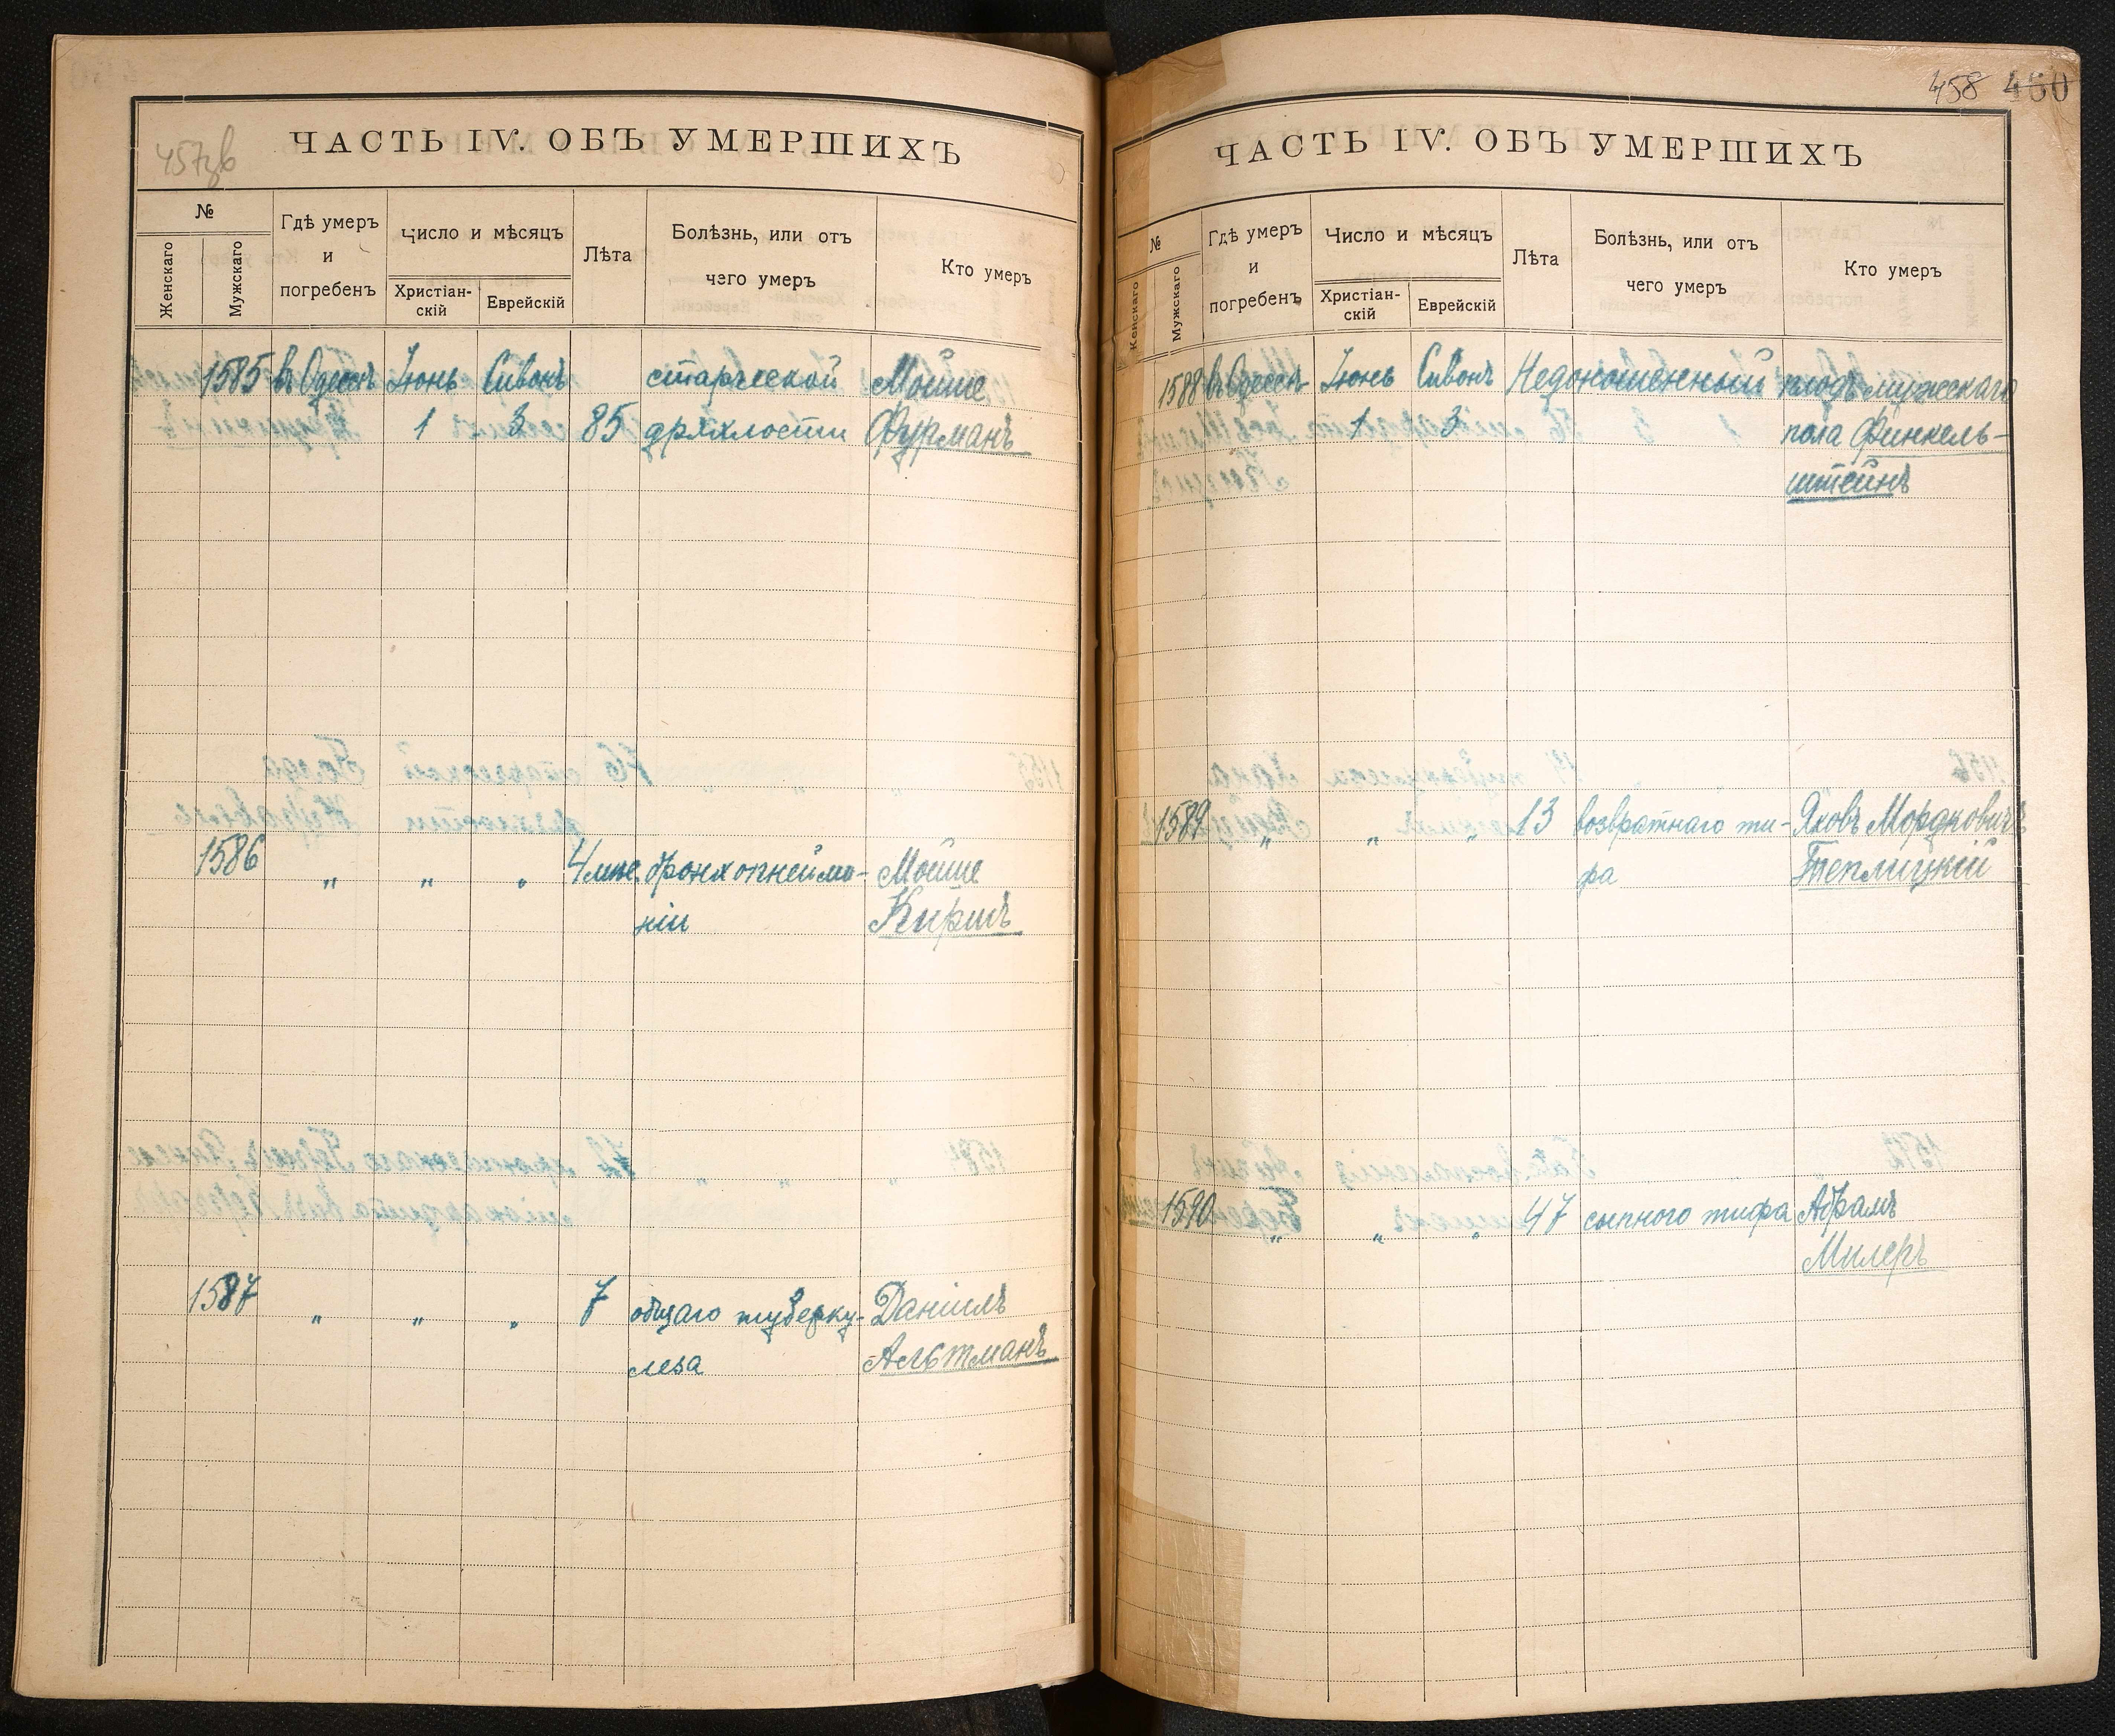 457зв
ЧАСТЬ IV. ОБЪ УМЕРШИХЪ
№
Женскаго
Мужскаго
Гдѣ умеръ
и
погребенъ
Число и мѣсяцъ
Христіан-
скій
Еврейскій
Лѣта
Болѣзнь, или отъ
чего умеръ
Кто умеръ
1585 въ Одессѣ Іюнь Сивонъ старческой Мойше
1 3 85 дряхлости Фурманъ
1586 „ „ „ 4 мѣс. бронхопнеймо- Мойше
ніи Киршъ
1587 „ „ „ 7 общаго туберку- Даніилъ
леза Альтманъ
458 460
ЧАСТЬ IV. ОБЪ УМЕРШИХЪ
№
Женскаго
Мужскаго
Гдѣ умеръ
и
погребенъ
Число и мѣсяцъ
Христіан-
скій
Еврейскій
Лѣта
Болѣзнь, или отъ
чего умеръ
Кто умеръ
1588 въ Одессѣ Іюнь Сивонъ Недоношенный плодъ мужескаго
1 3 пола Финкель-
штейнъ
1589 „ „ „ 13 возвратнаго ти- Яковъ Мордковичъ
фа Теплицкій
1590 „ „ „ 47 сыпного тифа Абрамъ
Милеръ